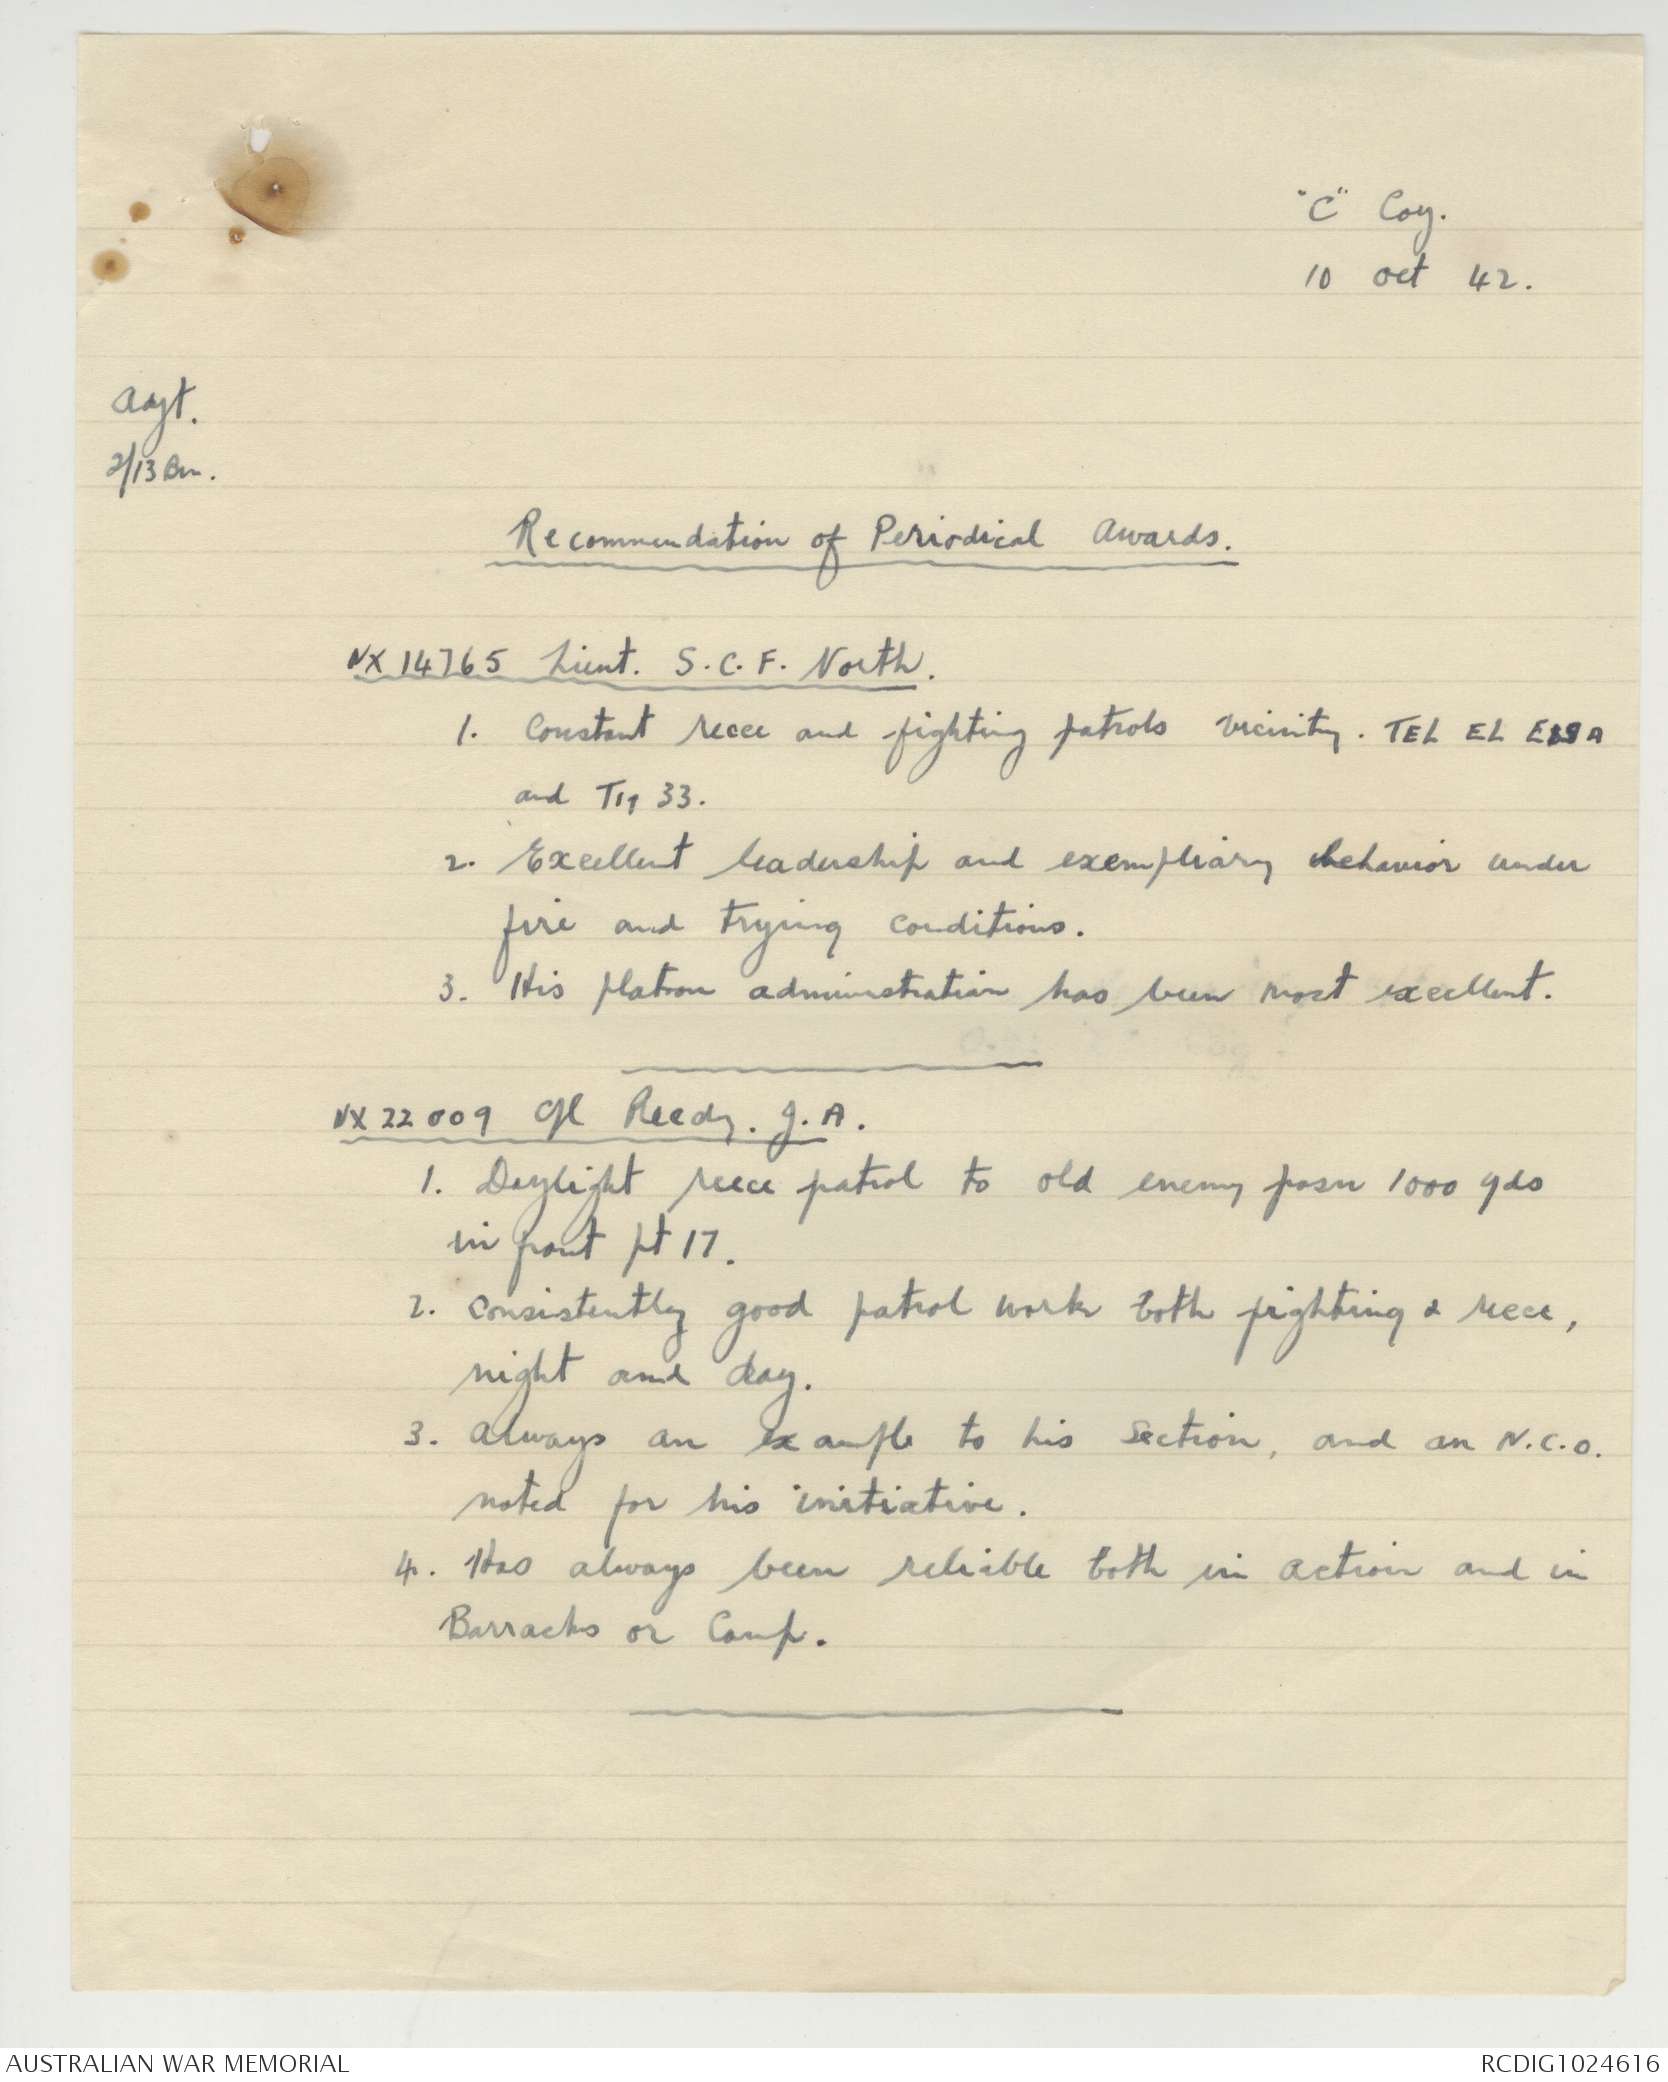 "C" Coy.
10 Oct 42.
Adjt.
2/13 Bn.
Recommendation of Periodical Awards.
NX 14765 Lieut. S.C.F. North.
1. Constant recce and fighting patrols vicinity. TEL EL EISA
and Trig 33.
2. Excellent leadership and exempliary behavior under
fire and trying conditions.
3. His platoon administration has been most excellent.
NX 22009 Cpl Reedy. J.A.
1. Daylight recce patrol to old enemy posn 1000 yds
in front pt 17.
2. Consistently good patrol work both fighting & recce,
night and day.
3. Always an example to his Section, and an N.C.O.
noted for his initiative.
4. Has always been reliable both in action and in
Barracks or Camp.
AUSTRALIAN WAR MEMORIAL
RCDIG1024616